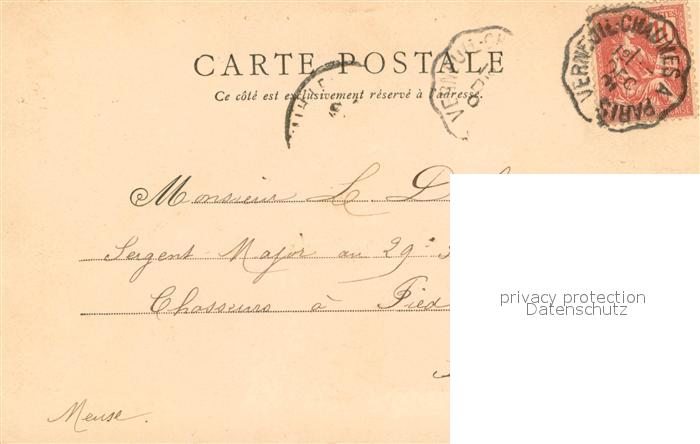 CARTE POSTALE
Ce côté est exclusivement réservé à l'adresse.
VERNEUIL-CHAUNES A PARIS
Monsieur L. D
Sergent Major au 29e
Chasseurs à Pied
Meuse.
privacy protection
Datenschutz